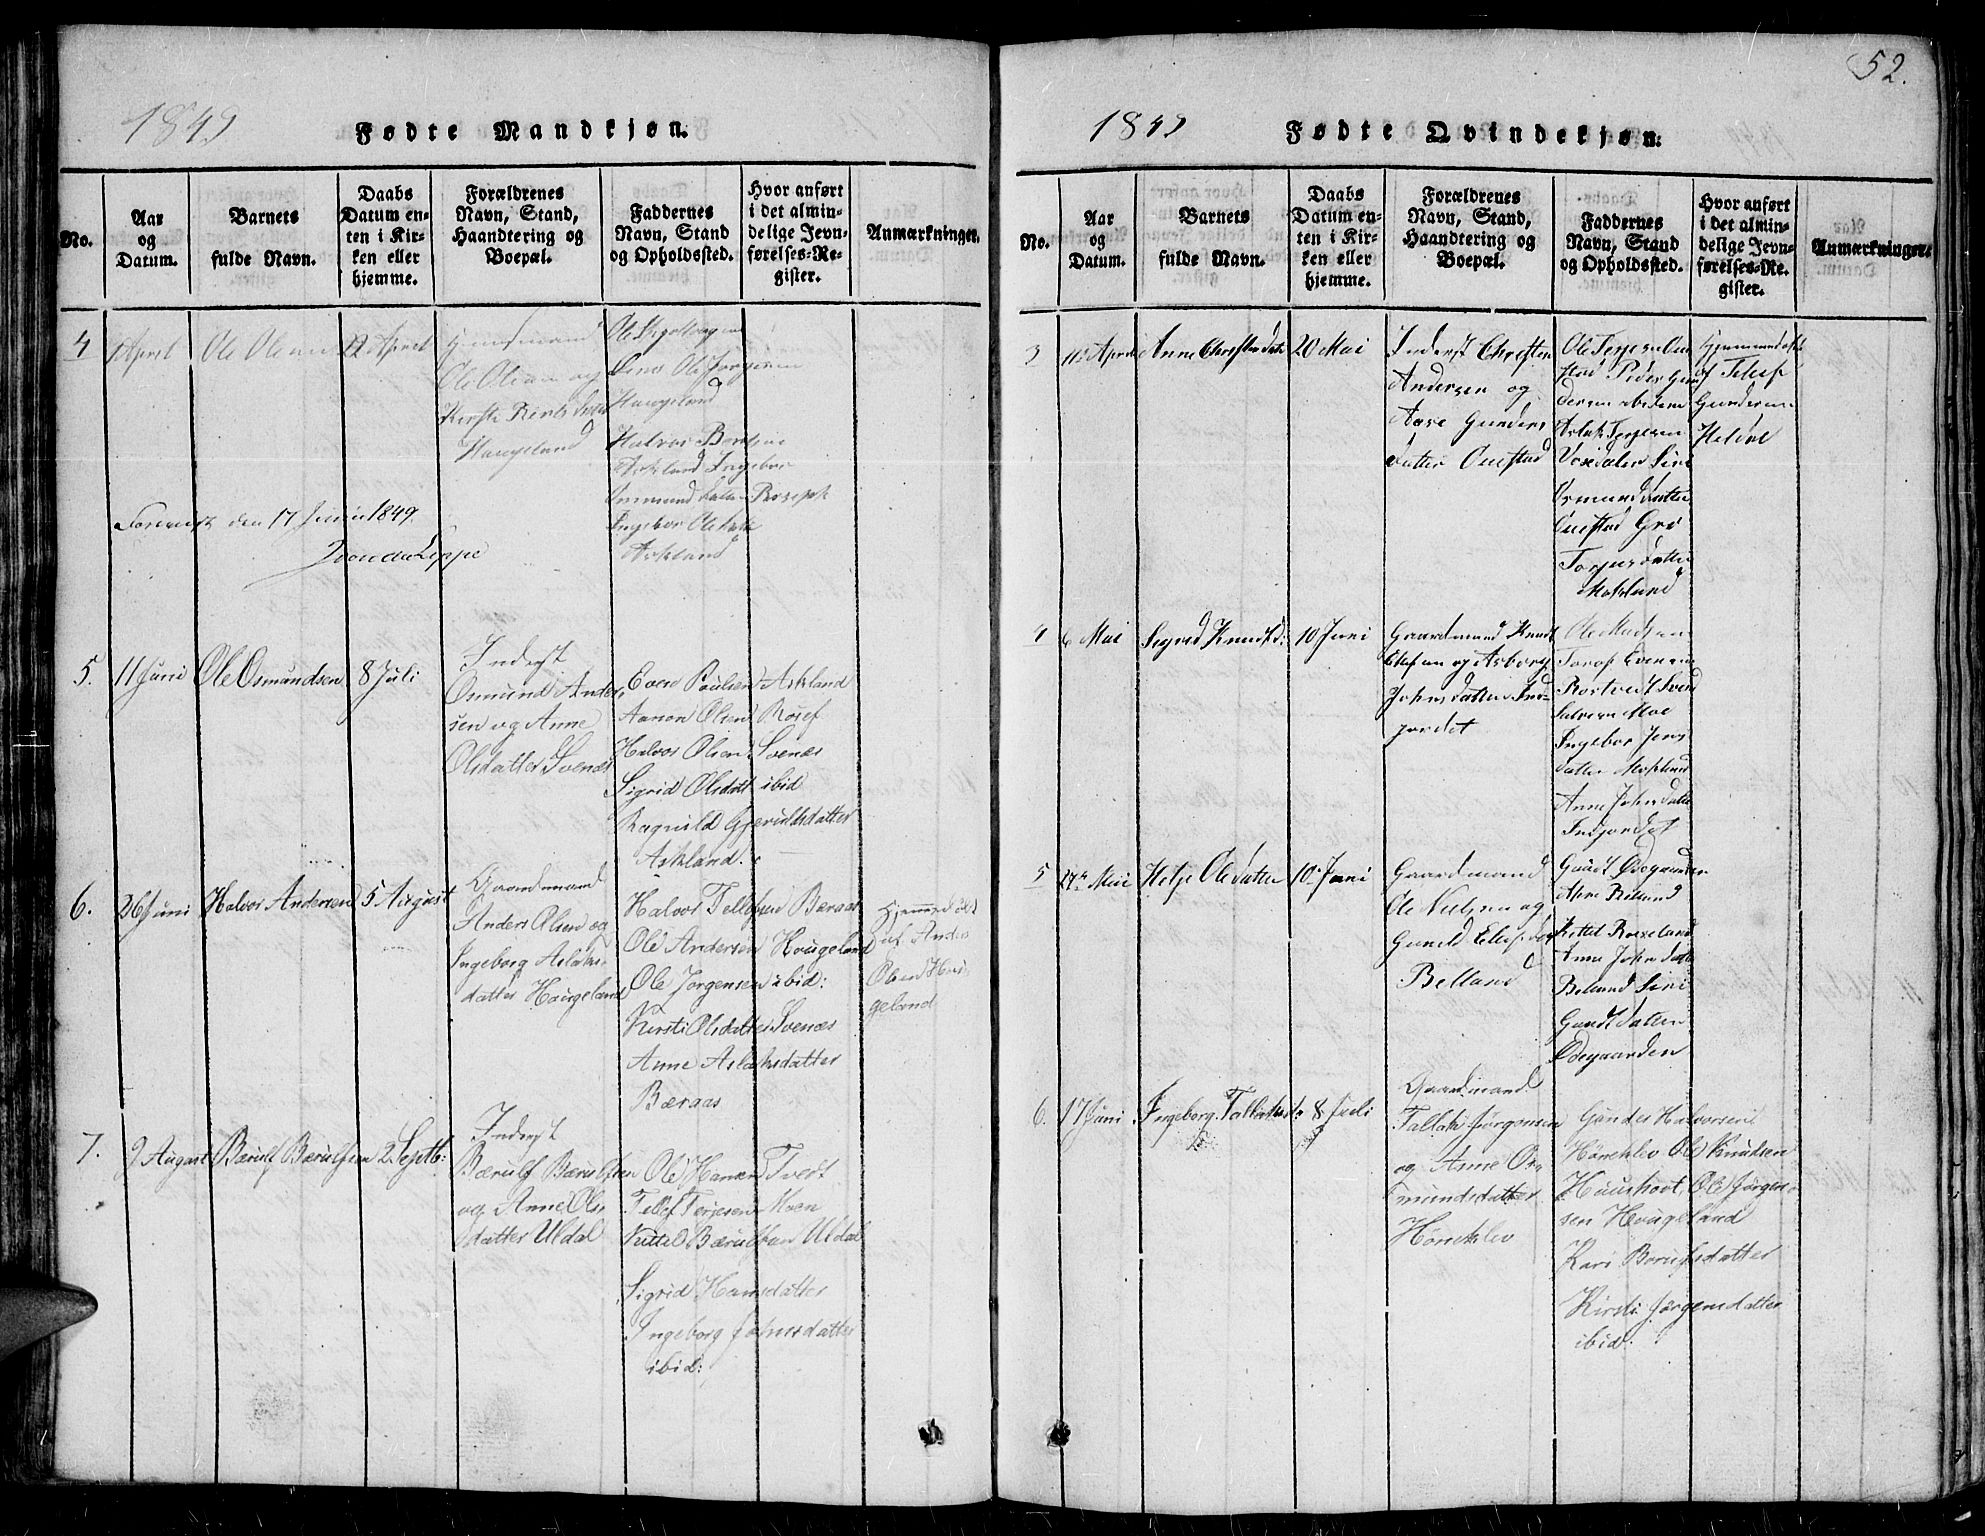 1849
Fødte Mandkjøn.
No.
Aar
og
Datum.
Barnets
fulde Navn.
Daabs
Datum en-
ten i Kir-
ken eller
hjemme.
Forældrenes
Navn, Stand,
Haandtering og
Boepæl.
Faddernes
Navn, Stand
og Opholdssted.
Hvor anført
i det almin-
delige Jevn-
førelses-Re-
gister.
Anmærkninger.
4
April
Ole Olsen
22 April
Huusmand
Ole Olsen og
Haugeland
Ole
Ole Jörgensen
Haugeland
Halvor
Askland Ingebor
Osmundsdatter Rosseph
Ingebor Olsdatt
Askland
Foreviist den 17 Juni 1849.
5.
11 Juni
Ole Osmundsen
8 Juli
Inderst
Osmund Ander-
sen og Anne
Olsdatter Svenæs
Even Poulsen Askland
Aanon Olsen Rosef
Halvor Olsen Svenæs
Sigrid Olsdatt ibid
Ragnild Gjerulds datter
Askland.
6.
26 Juni
Halvor Andersen
5 August
Gaardmand
Anders Olsen og
Ingeborg Aslaks-
datter Hougeland
Halvor Tellefsen Beraas
Ole Andersen Hougeland
Ole Jörgensen ibid:
Kirsti Olsdatter Svenæs
Anne Aslaksdatter
Bæraas
Hjemmedøbt
af Anders
Olsen Hou
geland
7.
9 August
Bærulf Bærulfsen
2 Septb:
Inderst
Bærulf Bærulfsen
og Anne Ols-
datter Uldal
Ole Hansen Tvedt
Tellef Terjesen Moen
Kittel Bærulfsen Uldal
Sigrid Hansdatter
Ingeborg Johnsdatter
ibid:
52.
1849
Fødte Qvindekjøn.
No.
Aar
og
Datum.
Barnets
fulde Navn.
Daabs
Datum en-
ten i Kir-
ken eller
hjemme.
Forældrenes
Navn, Stand,
Haandtering og
Boepæl.
Faddernes
Navn, Stand
og Opholdssted.
Hvor anført
i det almin-
delige Jevn-
førelses-Re-
gister.
Anmærkninger.
3
11 April
Anne Christensdatt
20 Mai
Inderst Christen
Andersen og
Aase Gunders
datter Ouestad
Ole Terjesen Oue
stad Peder Gun
dersen ibidem
Aslak Terjesen
Siri
Osmundsdatter
Ouestad Gro
Torjusdatter
Moseland
Hjemmedøbt
af Tellef
Gundersen
Heldal
4
6 Mai
Sigrid Knudsd:
10 Juni
Gaardmand Knud
Olsen og Asborg
Johnsdatter
Ole Madsen
Even
Rostvedt Svend
Salvesen Moe
Ingebor Jens
datter
Anne Johnsdatter
5
27 Mai
Helje Olsdatter
10 Juni
Gaardmand
Ole Nielsen og
Gunild
Belland
Gundt Ødegaarden
Belland
Kittel Rosseland
Anne Johnsdatt
Belland Siri
Gundtdatter
Ødegaarden
6.
17 Juni
Ingeborg Tallaksd:
8 Juli
Gaardmand
Tallak Jörgensen
og Anne Os-
mundsdatter
Hönekløv
Gunder Halvorsen
Hönekløv Ole Knudsen
Ole Jörgen-
sen Hougeland
Kari Berulfsdatter
Kirsti Jörgensdatter
ibid: